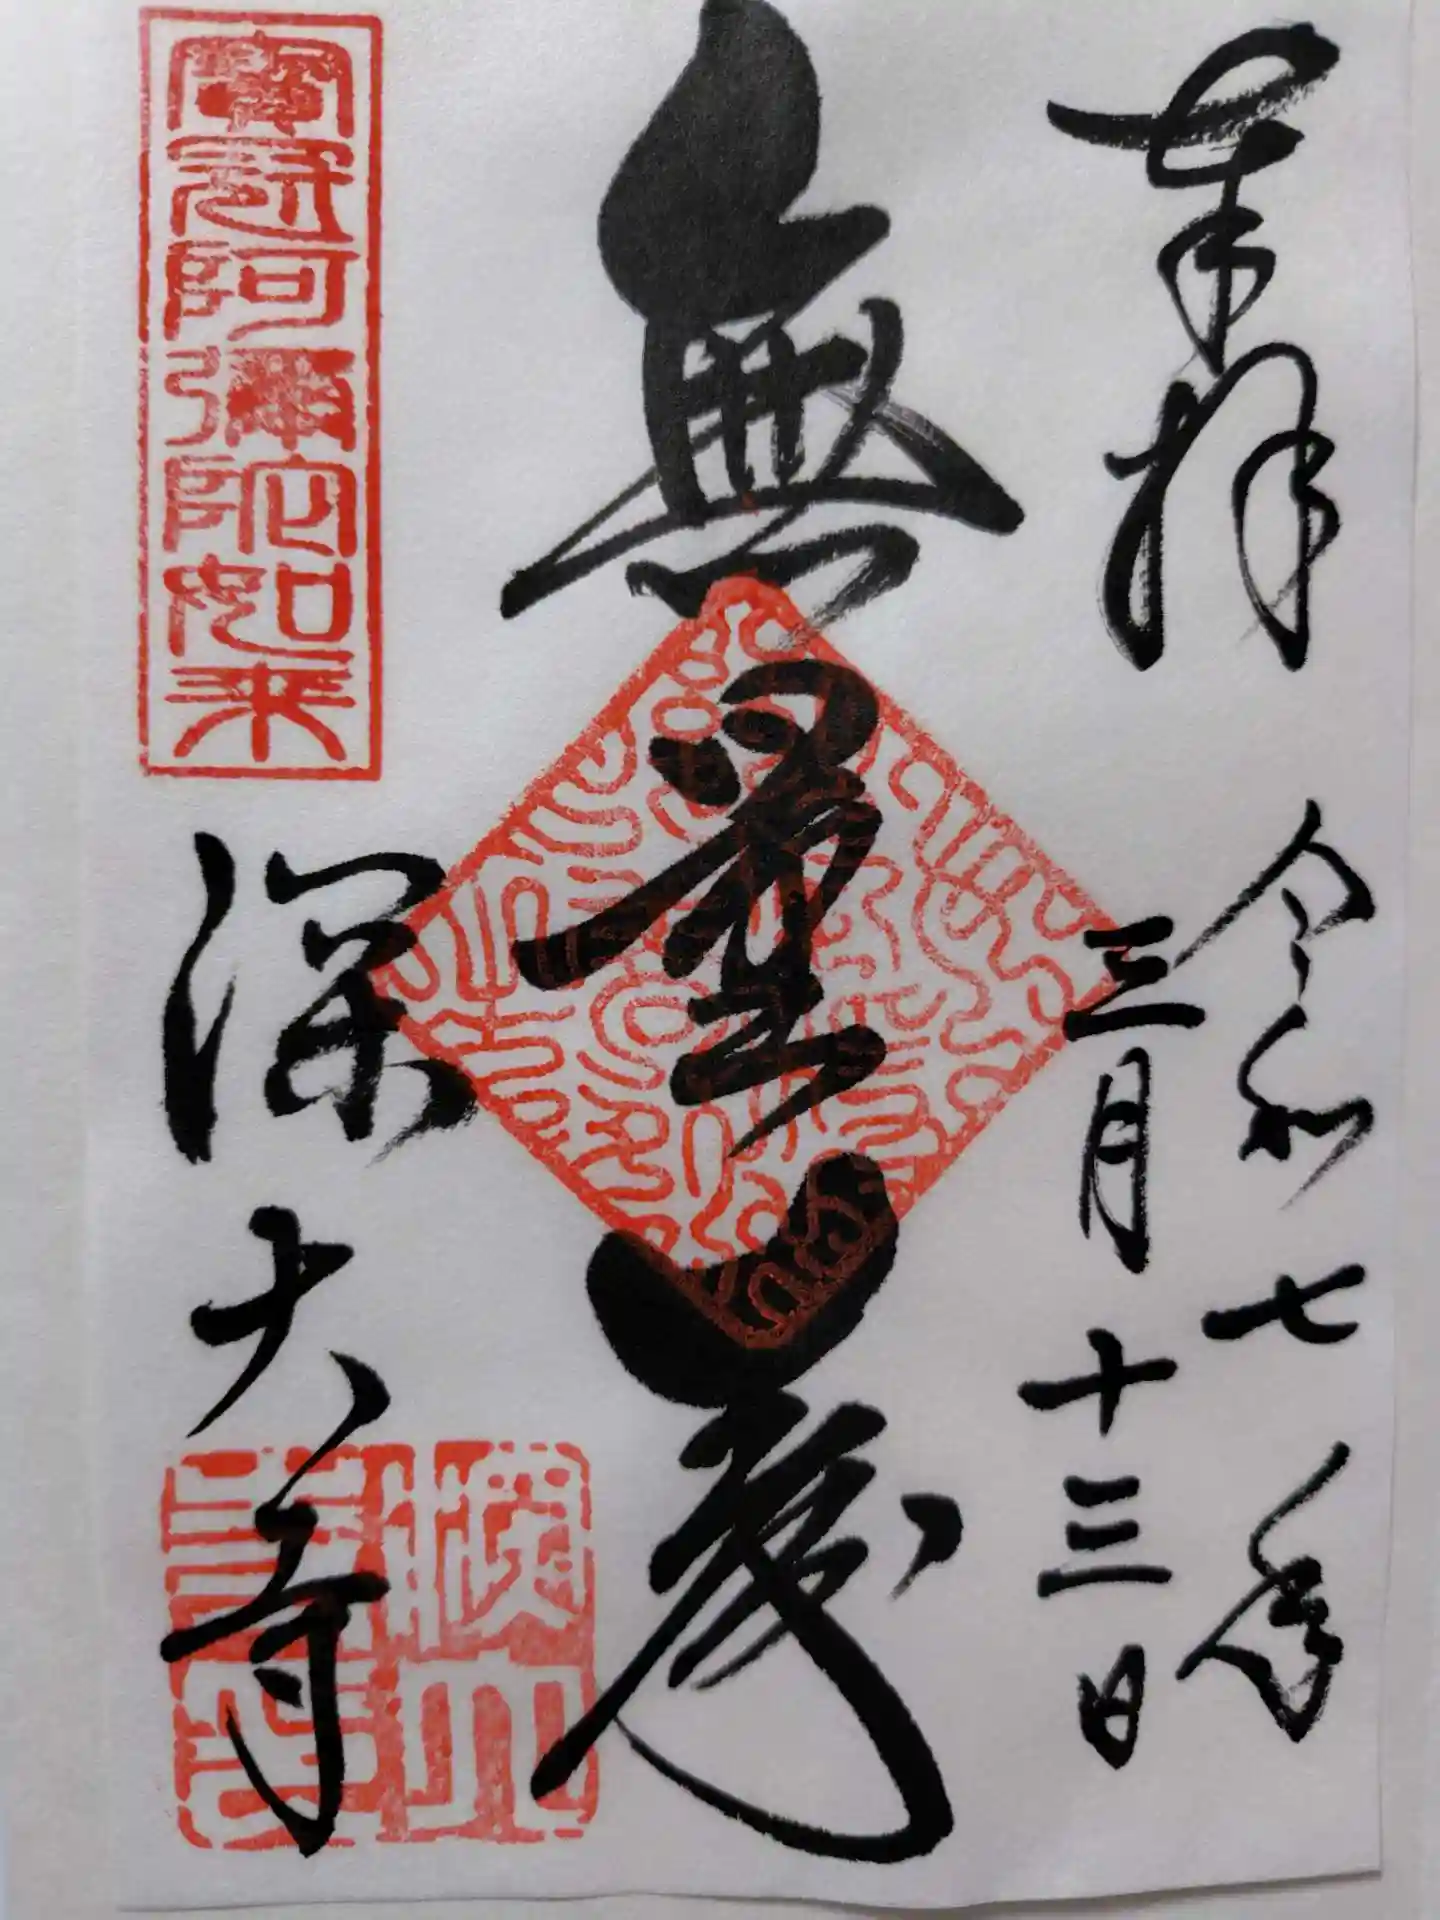 奉拝
令和七年
三月十三日
無量寿
寶冠阿彌陀如来
深大寺
深大寺